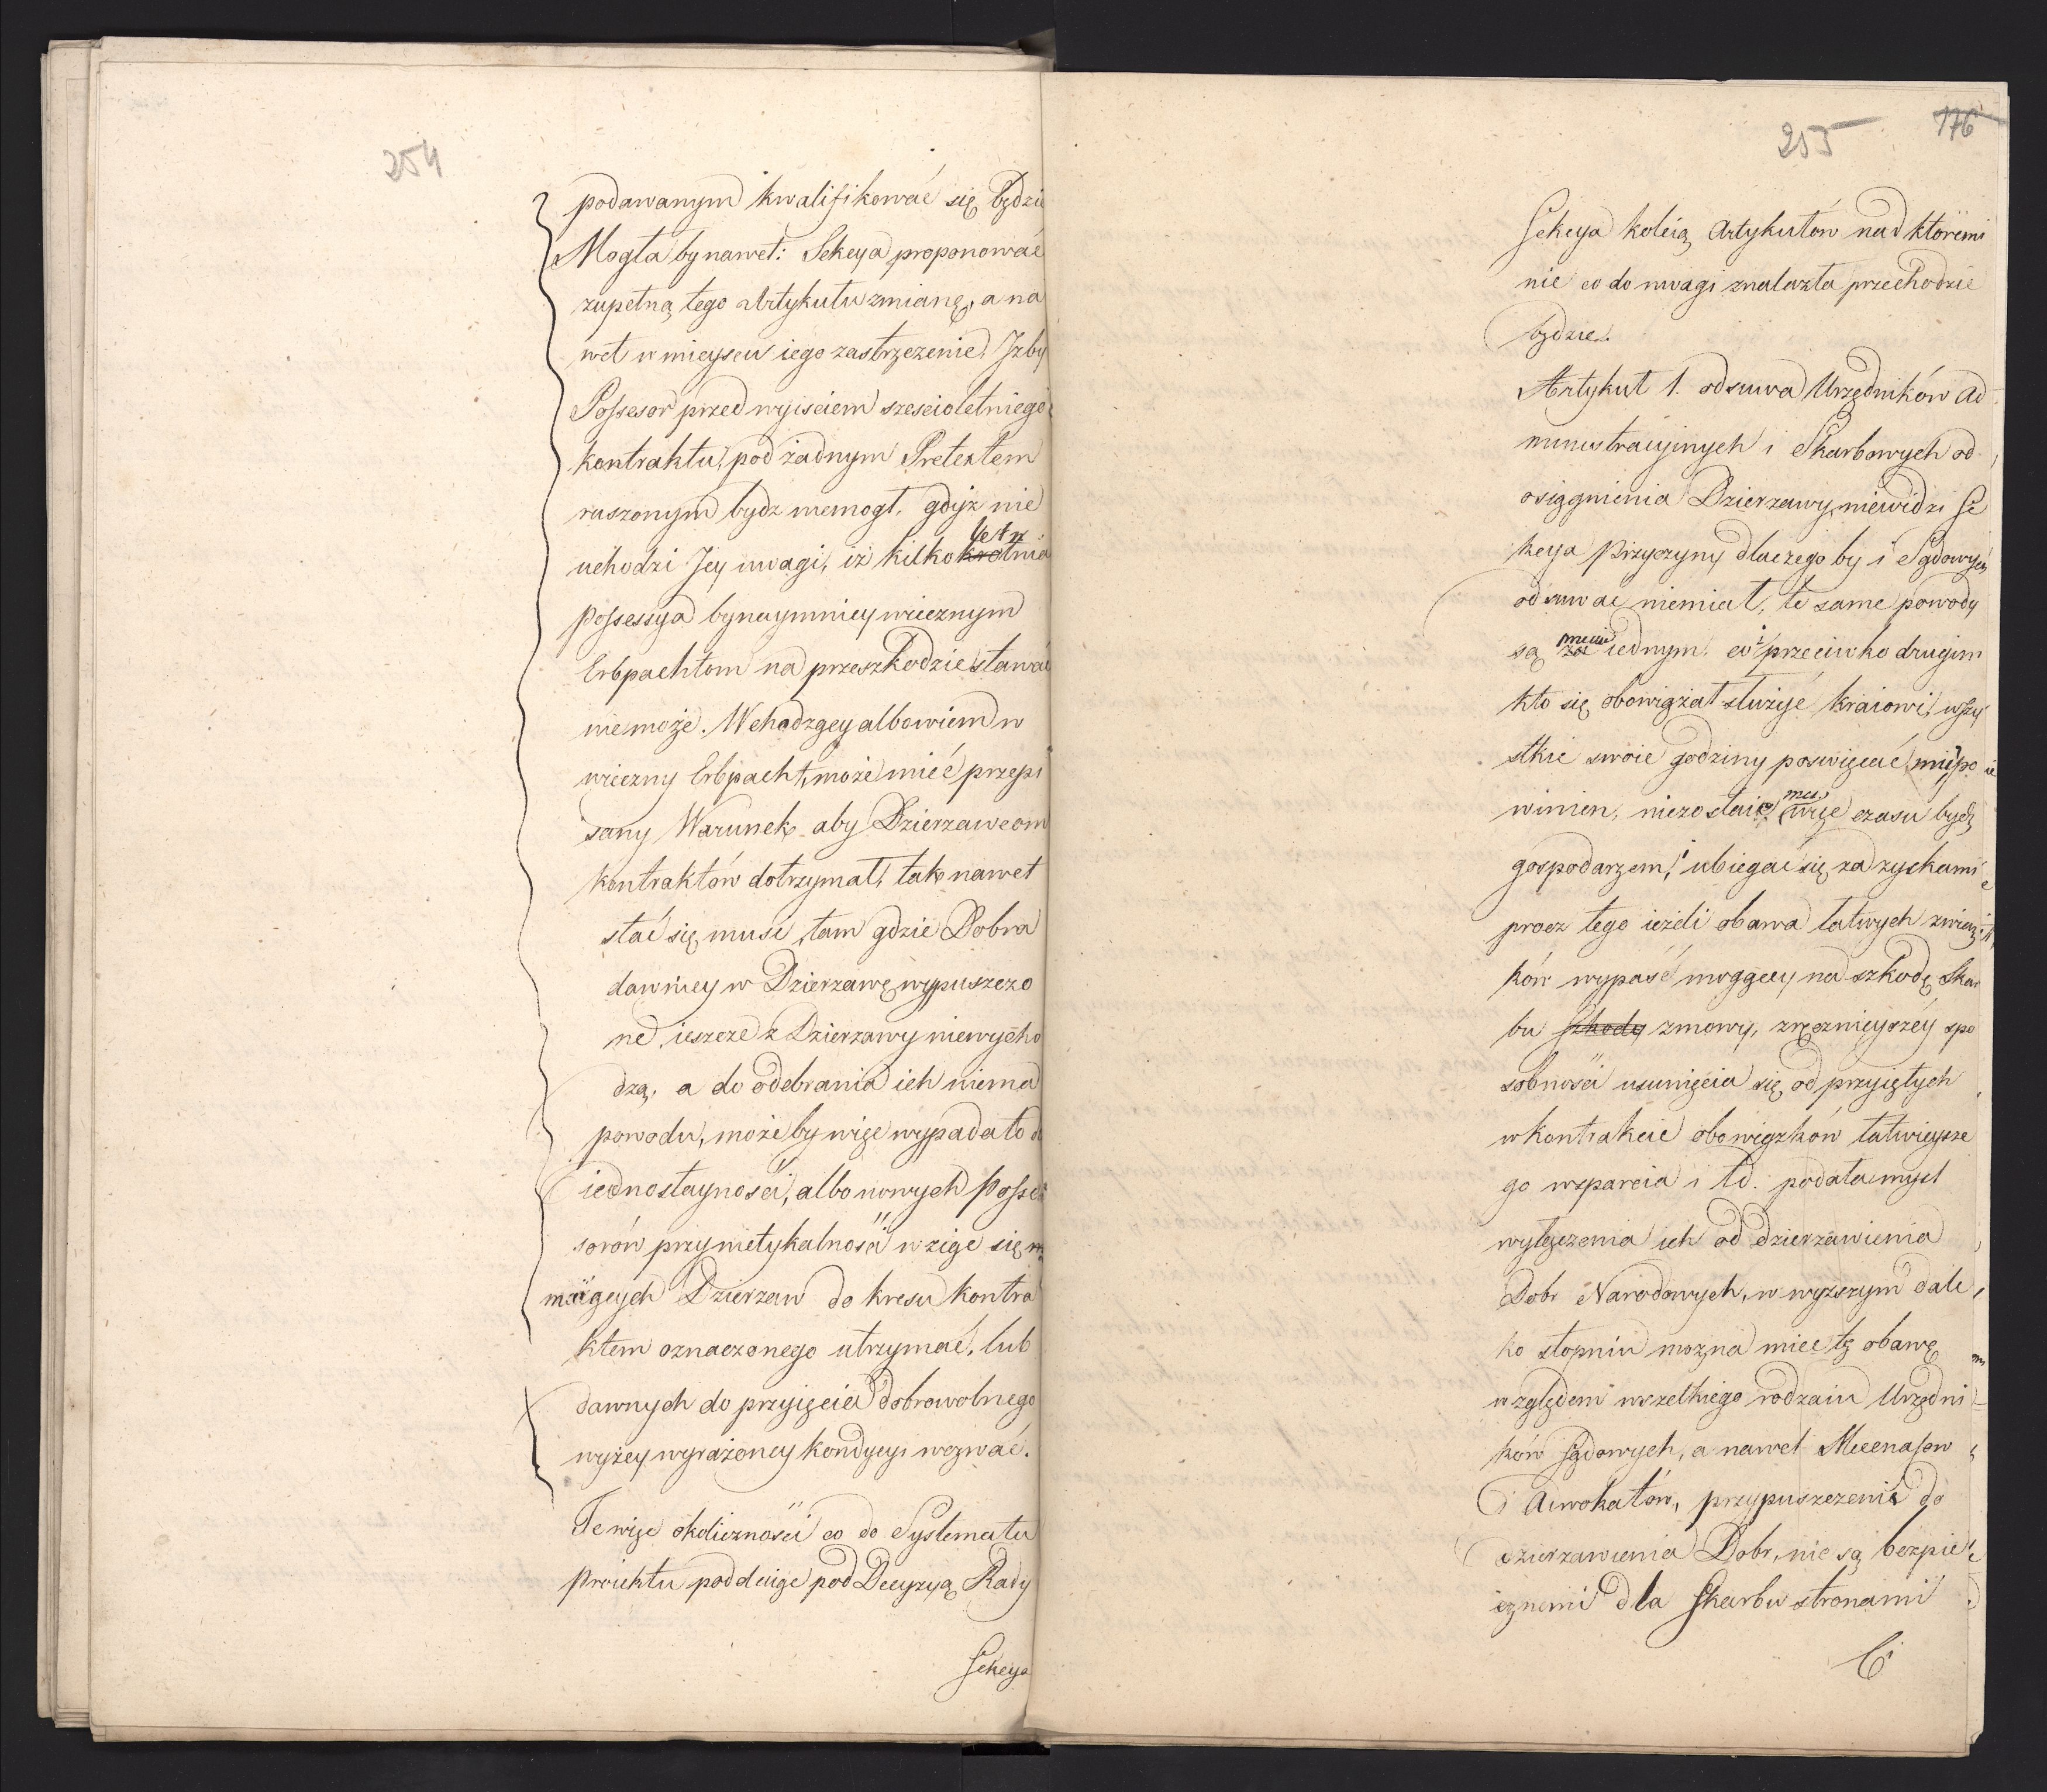 254
podawanym kwalifikować się będzie
Mogła by nawet: Sekcya proponować
zupełną tego Artykułu zmianę, a na
wet w mieyscu iego zastrzeżenie, Jżby
Possesor przed wyiściem sześcioletniego
kontraktu, pod żadnym Pretextem
ruszonym bydz niemogł, gdyż nie
uchodzi Jey uwagi, iż kilkokrotnia
letn
possessya bynaymniey wiecznym
Erbpachtom na przeszkodzie stawać
nie może. Wchodzący albowiem w
wieczny Erbpacht, może mieć przepi
sany Warunek aby Dzierzawcom
kontraktów dotrzymał, tak nawet
stać się musi, tam gdzie Dobra
dawniey w Dzierzawę wypuszczo
ne, ieszcze z Dzierzawy niewycho
dzą, a do odebrania ich niema
powodu, może by więc wypadało dla
iednostayności, albo nowych posse
sorów przy nietykalności wziąć się
maiących Dzierzaw do kresu kontra
ktem oznaczonego utrzymać, lub
dawnych do przyięcia dobrowolnego
wyżey wyrażoney kondycyi wezwać.
Te więc okoliczności co do Systematu
proiektu poddaiąc pod Decyzyą Rady
Sekcya
255 176
Sekcya koleią Artykułów nad któremi
nie co do uwagi znalazła przechodzić
będzie.
Artykuł 1. odsuwa Urzędników Ad
ministracyinych i Skarbowych od
osiągnienia Dzierzawy, niewidzi Se
kcya przyczyny dlaczego by i Sądowych
odsuwać niemiał, te same powody
są za iednym co i przeciwko drugim
kto się obowiązał służyć kraiowi, wszy
stkie swoie godziny poswięcać mu po
winien, niezostaie mu więc czasu bydz
gospodarzem, i ubiegać się za zyskami
procz tego ieżeli obawa łatwych związ
ków wypaść mogącey na szkodę Skar
bu szkody zmowy, zręcznieyszéy spo
sobności usunięcia się od przyiętych
w kontrakcie obowiązków łatwieysze
go wsparcia i t d. podała mysl
wyłączenia ich od dzierzawienia
Dobr Narodowych, w wyższym dale
ko stopniu można mieć tę obawę
względem wszelkiego rodzaiu Urzędni
ków sądowych, a nawet Mecenasow
i Adwokatów, przypuszczeni do
dzierzawienia Dobr, nie są bezpie
cznemi dla Skarbu stronami
Ci